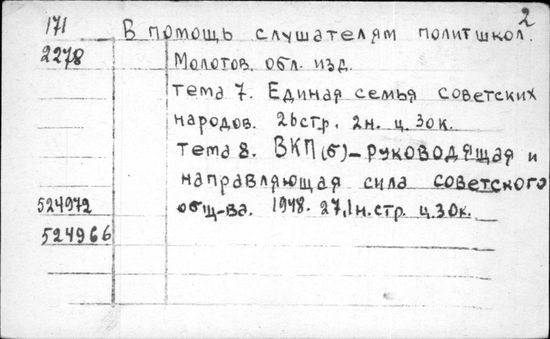 2
171 В помощь слушателям политшкол.
2278 Молотов. обл. изд.
тема 7. Единая семья советских
народов. 26стр. 2н. ц. 30к.
тема 8. ВКП(б)–руководящая и
направляющая сила советского
524972 общ-ва. 1948. 27,1н.стр. ц.30к.
524966